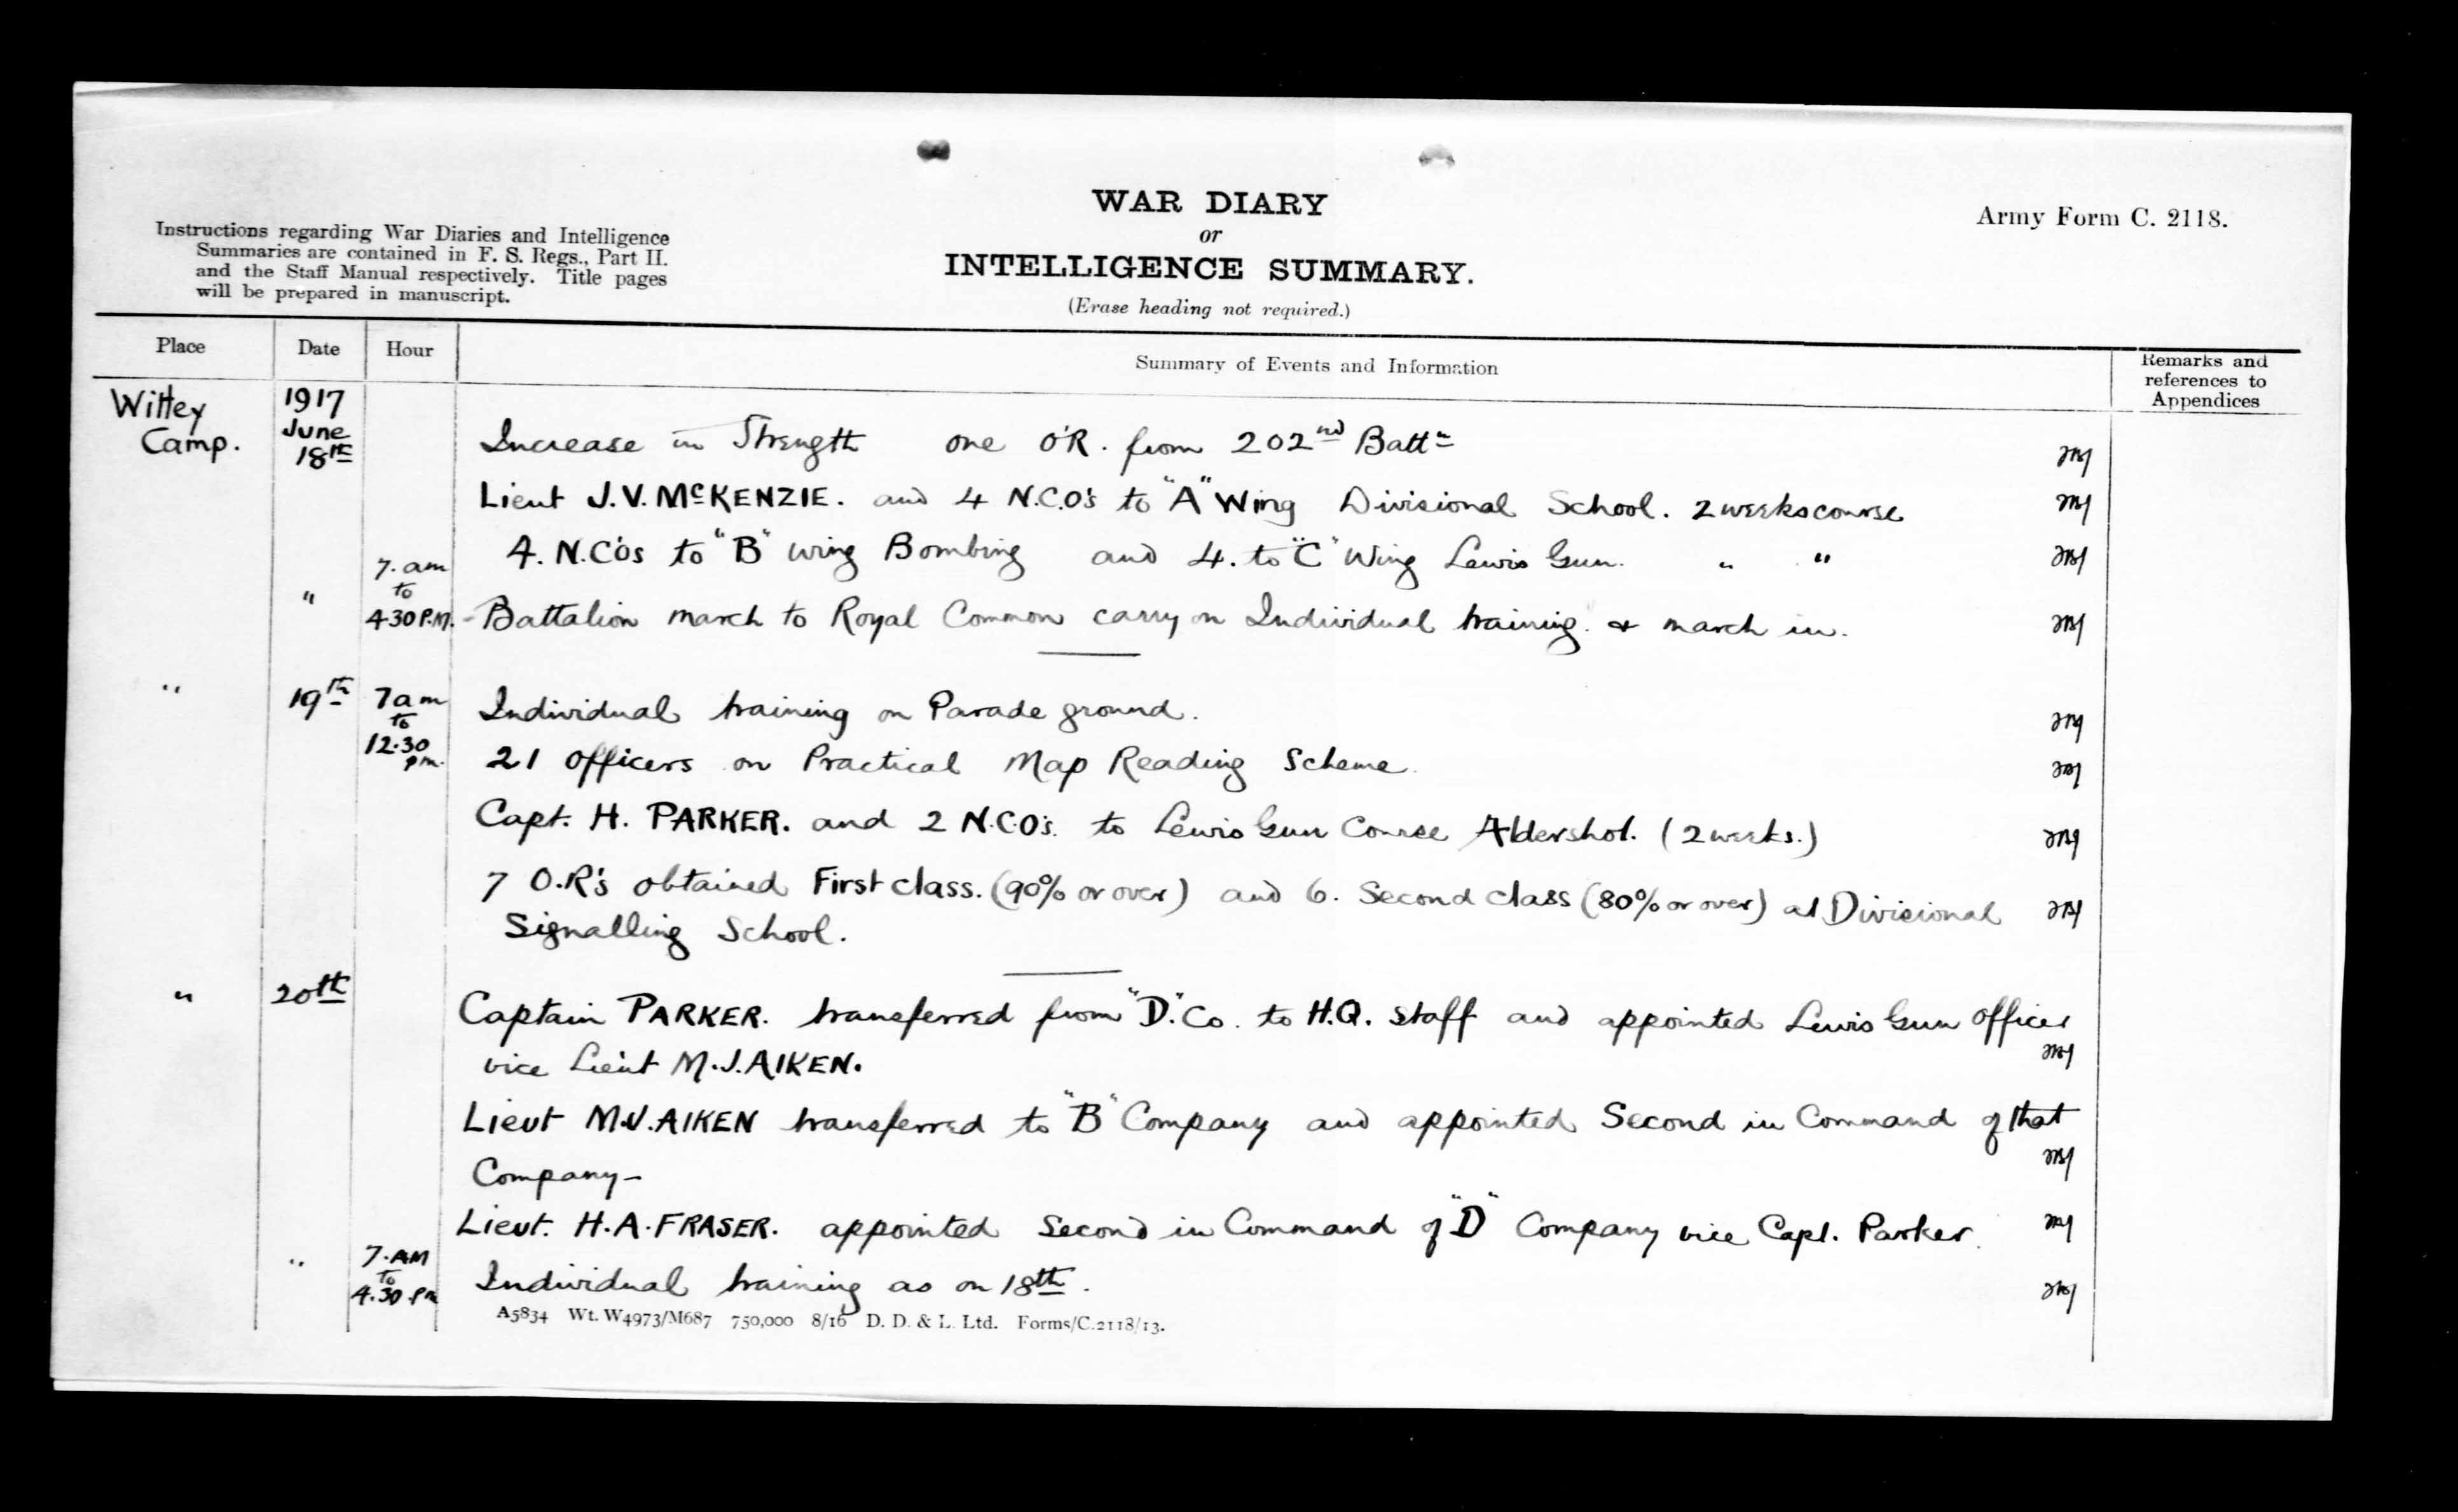 WAR DIARY
or
INTELLIGENCE SUMMARY.
(Erase heading not required.)
Army Form C. 2118.
Instructions regarding War Diaries and Intelligence
Summaries are contained in F. S. Regs., Part II.
and the Staff Manual respectively. Title pages
will be prepared in manuscript.
Place Date Hour Summary of Events and Information Remarks and references to Appendices
Witley Camp. 1917 June 18th Increase in Strength one O'R. from 202nd Battn
Lieut J.V. McKENZIE. and 4 N.C.O's to "A" Wing Divisional School. 2 weeks course
4. N.C'os to "B" wing Bombing and 4. to "C" Wing Lewis Gun. " "
" 7. am to 4.30 P.M. - Battalion march to Royal Common carry on Individual training. & march in.
" 19th 7 am to 12.30 pm. Individual training on Parade ground.
21 Officers on Practical Map Reading Scheme.
Capt. H. PARKER. and 2 N.C.O's. to Lewis Gun Course Aldershot. (2 weeks.)
7 O.R's obtained First class. (90% or over) and 6. Second class (80% or over) at Divisional
Signalling School.
" 20th Captain PARKER. transferred from "D". Co. to H.Q. Staff and appointed Lewis Gun Officer
vice Lieut M.J. AIKEN.
Lieut M.J. AIKEN transferred to "B" Company and appointed Second in Command of that
Company -
Lieut. H.A. FRASER. appointed Second in Command of "D" Company vice Capt. Parker.
" 7. AM to 4.30 Pm Individual training as on 18th.
A5834 Wt. W4973/M687 750,000 8/16 D. D. & L. Ltd. Forms/C.2118/13.